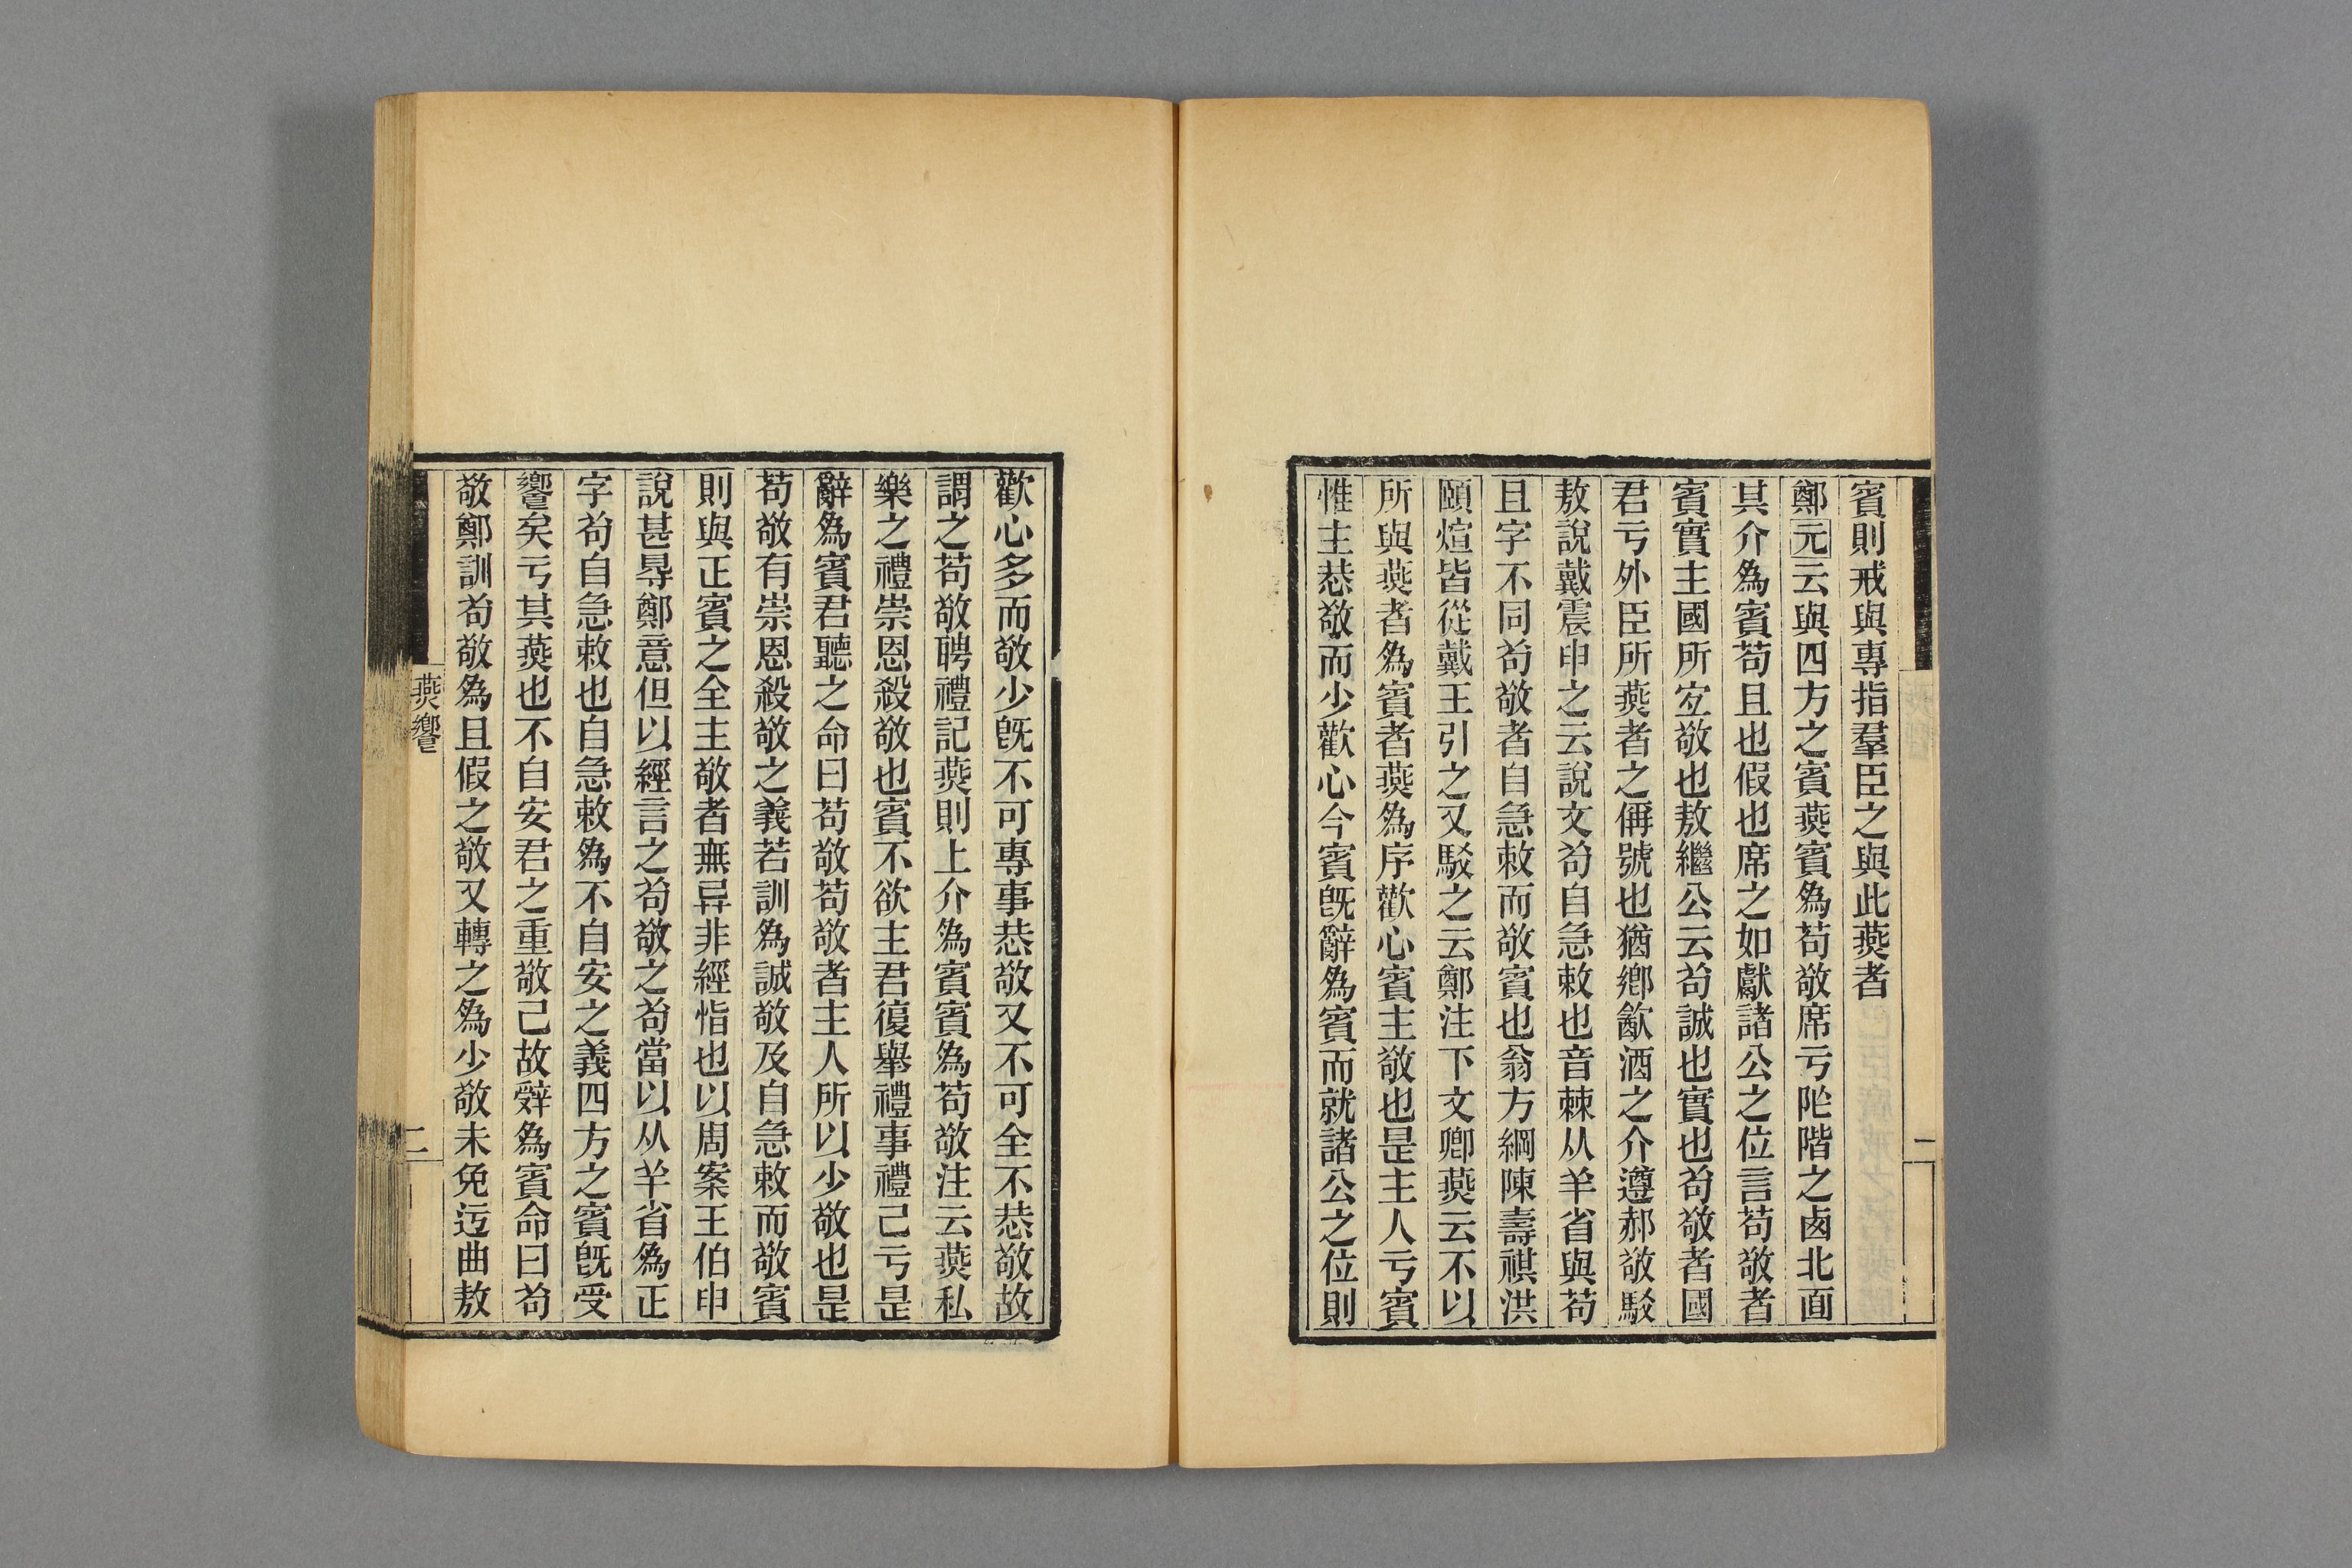 賓則戒與專指羣臣之與此燕者
鄭元云與四方之賓燕賓為苟敬席亏阼階之㢴北面
其介為賓苟且也假也席之如獻諸公之位言苟敬者
賓實主國所宐敬也敖繼公云茍誠也實也茍敬者國
君亏外臣所燕者之偁號也猶鄉㱃酒之介遵郝敬駁
敖說戴震申之云說文茍自急敕也音棘从羊省與苟
且字不同茍敬者自急敕而敬賓也翁方綱陳壽祺洪
頤煊皆從戴王引之又駁之云鄭注下文卿燕云不以
所與燕者為賓者燕為序歡心賓主敬也是主人亏賓
惟主恭敬而少歡心今賓旣辭為賓而就諸公之位則
歡心多而敬少旣不可專事恭敬又不可全不恭敬故
謂之苟敬聘禮記燕則上介為賓賓為苟敬注云燕私
樂之禮崇恩殺敬也賓不欲主君復舉禮事禮己亏是
辭為賓君聽之命曰苟敬苟敬者主人所以少敬也是
苟敬有崇恩殺敬之義若訓為誠敬及自急敕而敬賓
則與正賓之全主敬者無异非經恉也以周案王伯申
說甚㝵鄭意但以經言之茍敬之茍當以从羊省為正
字茍自急敕也自急敕為不自安之義四方之賓旣受
饗矣亏其燕也不自安君之重敬己故辤為賓命曰茍
敬鄭訓茍敬為且假之敬又轉之為少敬未免迃曲敖
燕饗
二